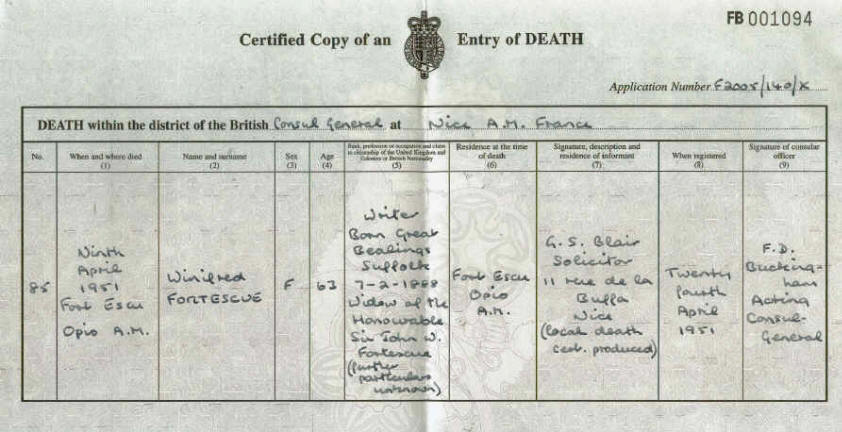 FB 001094
Certified Copy of an Entry of DEATH
Application Number F2005/140/X
DEATH within the district of the British Consul General at Nice A.M. France
No.
When and where died
(1)
Name and surname
(2)
Sex
(3)
Age
(4)
Rank, profession or occupation and claim
to citizenship of the United Kingdom and
Colonies or British Nationality
(5)
Residence at the time
of death
(6)
Signature, description and
residence of informant
(7)
When registered
(8)
Signature of consular
officer
(9)
85
Ninth
April
1951
Fort Escu
Opio A.M.
Winifred
FORTESCUE
F
63
Writer
Born Great
Bealings
Suffolk
7-2-1888
Widow of the
Honourable
Sir John W.
Fortescue
(further
particulars
unknown)
Fort Escu
Opio
A.M.
G.S. Blair
Solicitor
11 rue de la
Buffa
Nice
(local death
cert. produced)
Twenty
fourth
April
1951
F.D.
Bucking-
ham
Acting
Consul-
General